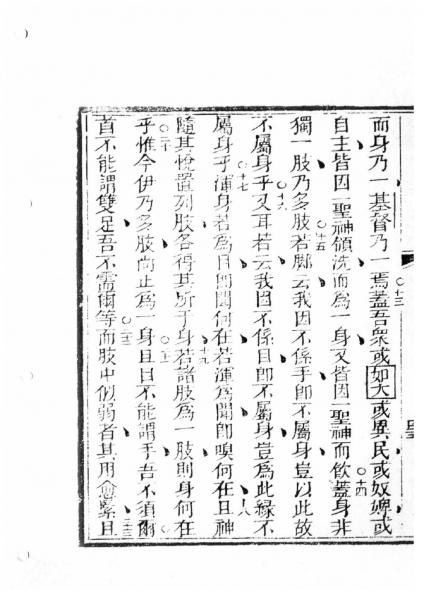 十三
而身乃一基督乃一焉蓋吾衆或如大或異民或奴婢或
十四
自主皆因一聖神領洗而爲一身又皆因一聖神而飲蓋身非
十五
獨一肢乃多肢若脚云我因不係手即不屬身豈以此故
十六
不屬身乎又耳若云我因不係目即不屬身豈爲此緣不
十七
十八
屬身乎渾身若爲目即聞何在若渾爲聞即嗅何在且神
十九
隨其悅置列肢各得其所于身若諸肢爲一肢則身何在
二十
二一
乎惟今伊乃多肢尚止爲一身且目不能謂手吾不須爾
二二
二三
首不能謂雙足吾不需爾等而肢中似弱者其用愈緊且